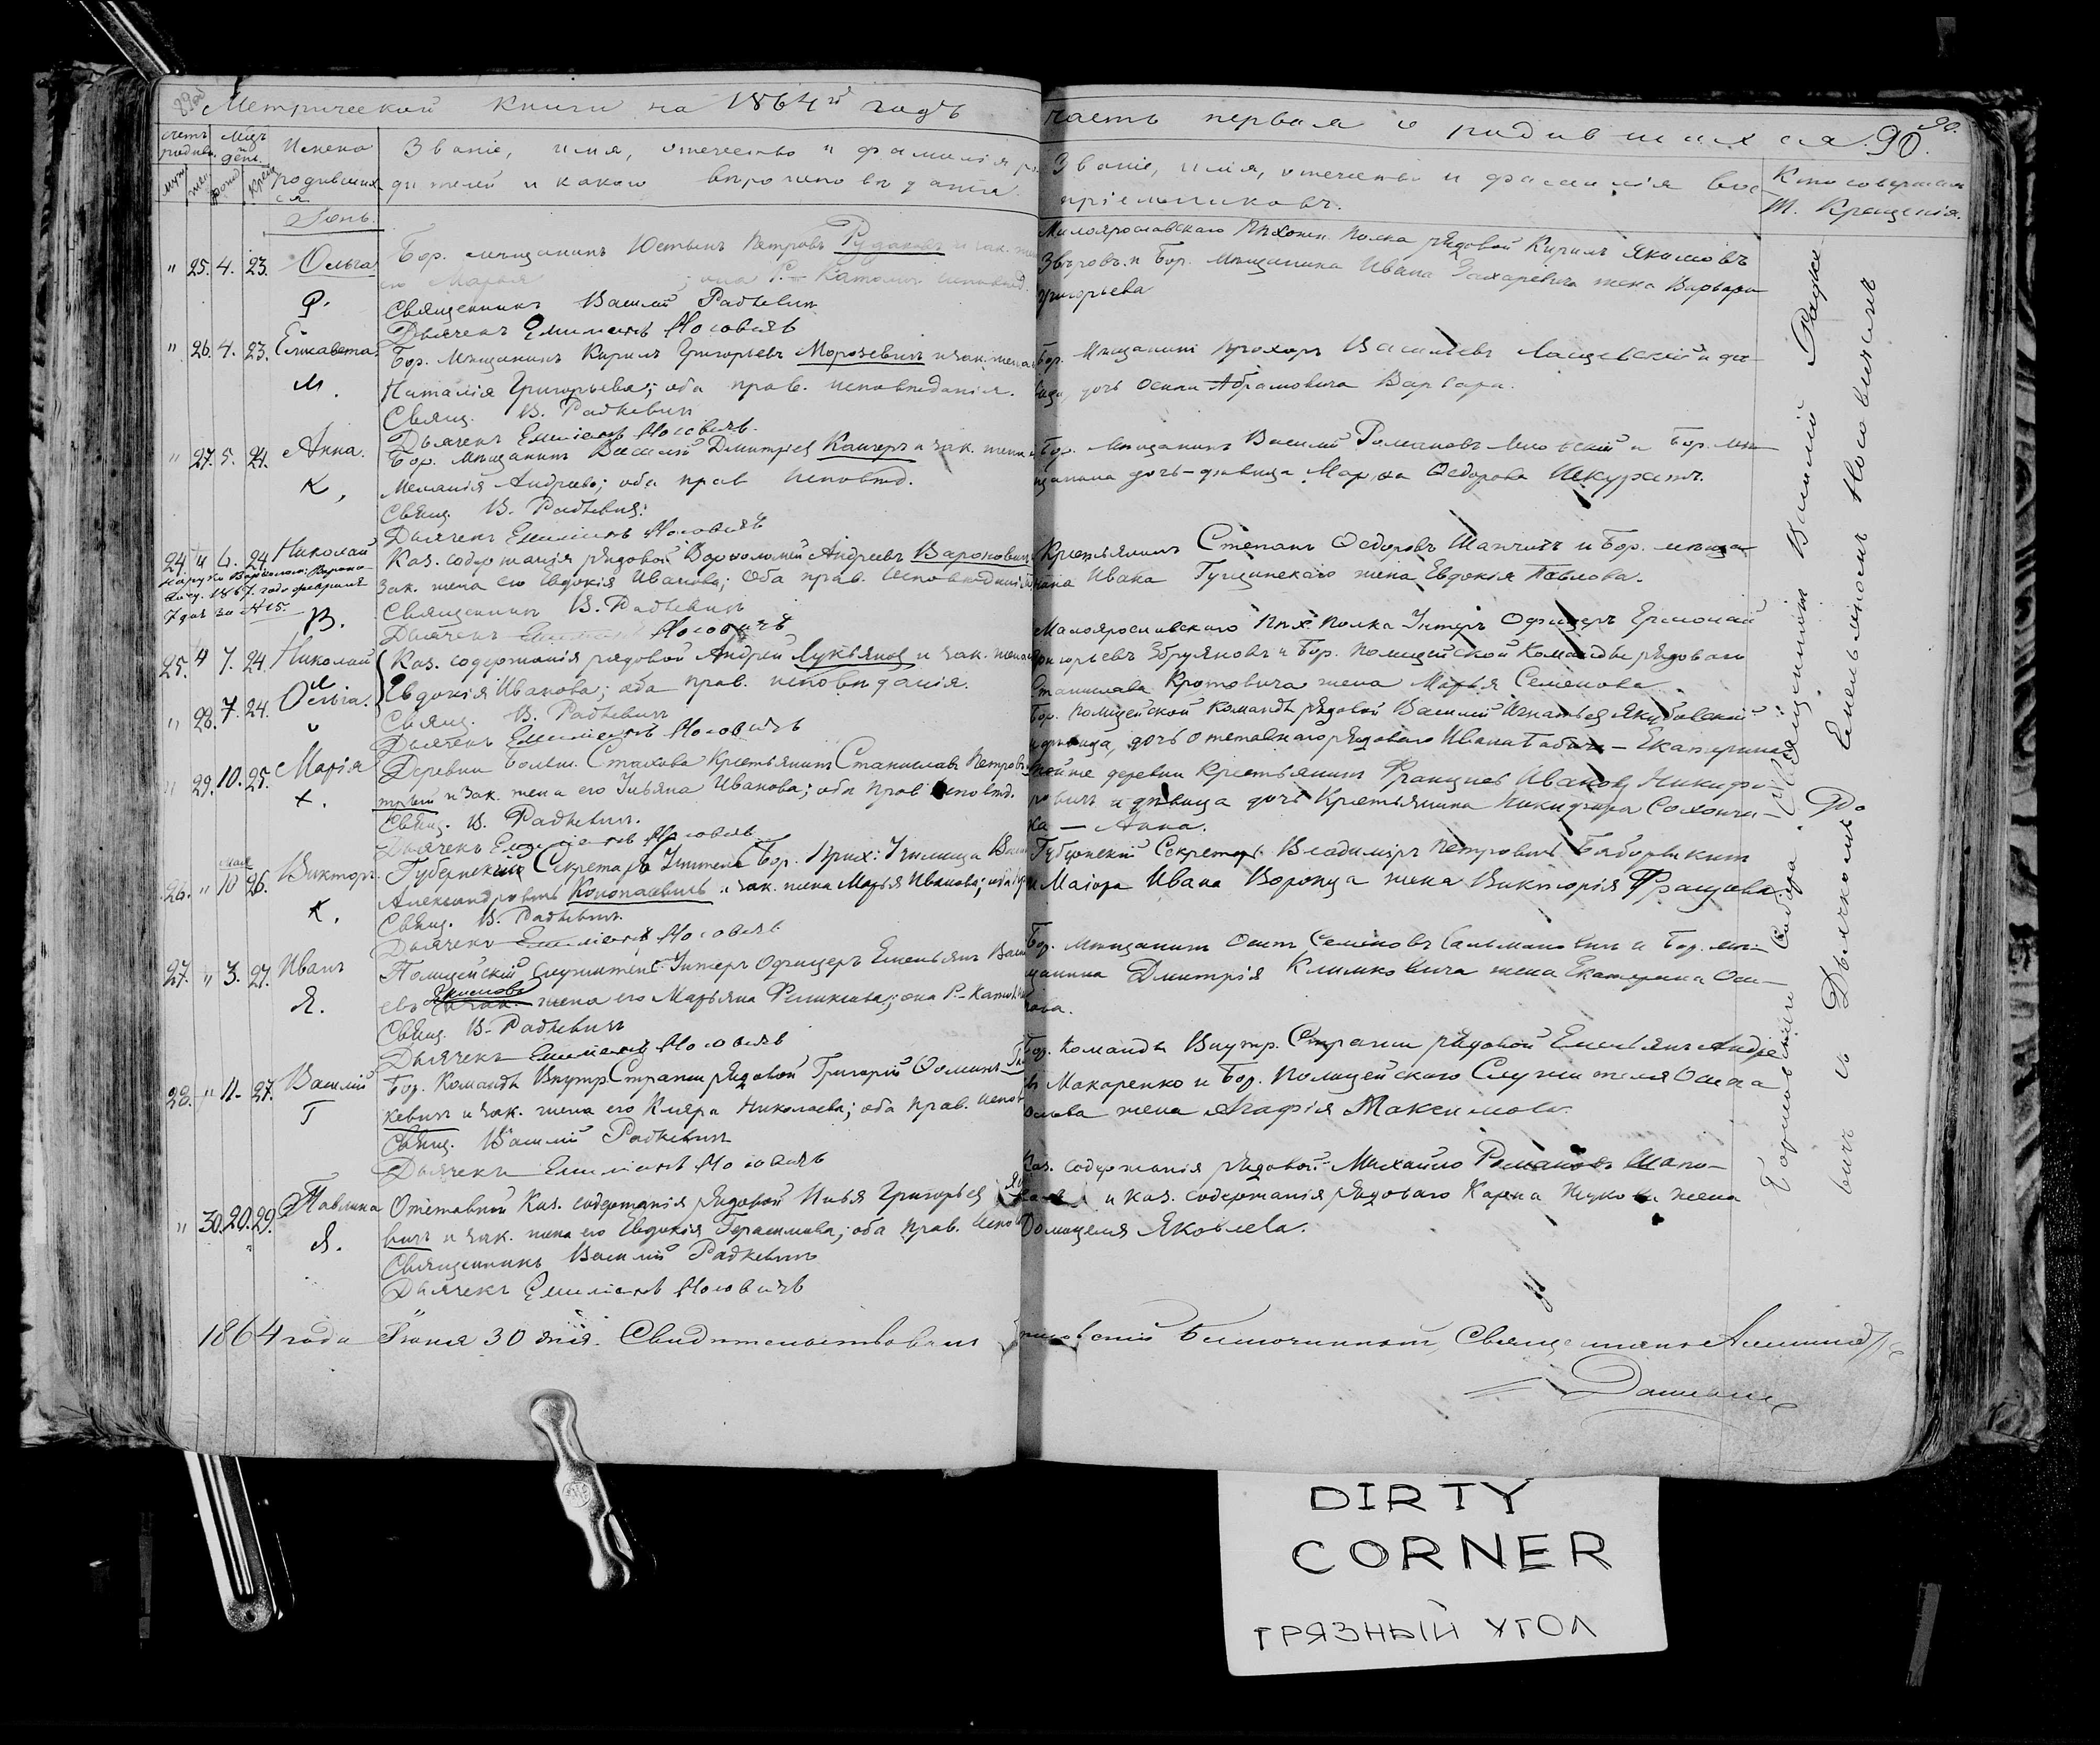 Метрической книги на 1864й годъ
часть первая о родившихся. 90.
Имена
родивших
ся
Званіе, имя, отечество и фамилія ро
дителей и какого вѣроисповѣданія.
Званіе, имя, отечество и фамилія вос
пріемниковъ.
Кто совершалъ
т. Крещенія.
Іюнь.
" 25. 4. 23. Ольга
Бор. мѣщанинъ Юстинъ Петровъ Рудаковъ и зак. жена
его Марья ; она Р.- Католич. исповѣд.
Р.
Священникъ Василій Радкевичъ
Дьячекъ Емиліанъ Носовичъ
Малоярославскаго Пѣхотн. полка рядовой Кирилъ Якимовъ
Звѣровъ. и Бор. мѣщанина Ивана Захаревича жена Варвара
Григорьева
" 26. 4. 23. Елисавета
Бор. Мѣщанинъ Кирилъ Григорьевъ Морозевичъ и зак. жена
М.
Наталія Григорьева; оба прав. исповѣданія.
Свящ. В. Радкевичъ
Дьячекъ Емиліанъ Носовичъ.
Бор. Мѣщанинъ Прохоръ Васильевъ Лащевскій и дѣ-
вица, дочь Осипа Абрамовича Варвара.
" 27. 5. 24. Анна.
Бор. Мѣщанинъ Василій Дмитріев Канчеръ и зак. жена
К,
Меланія Андреева; оба прав исповѣд.
Свящ. В. Радкевичъ
Дьячекъ Емиліанъ Носовичъ
Бор. Мѣщанинъ Василій Романовъ и Бор. мѣ-
щанина дочь-дѣвица Марѳа Ѳедорова Шкуратъ.
24. " 6. 24. Николай
1867. года февраля
7 дня за № 15.
В.
Каз. содержанія рядовой Варѳоломей Андреевъ Вароновичъ
Зак. жена его Евдокія Иванова; оба прав. исповѣданія
Священникъ В. Радкевичъ
Дьячекъ Емиліанъ Носовичъ
Крестьянинъ Степанъ Ѳедоровъ Шапчицъ и Бор. мѣща-
нина Ивана Гущинскаго жена Евдокія Павлова.
25. " 7. 24. Николай
Л
" 28. 7. 24. Ольга.
Каз. содержанія рядовой Андрей Лукьянов и зак. жена
Евдокія Иванова; оба прав. исповѣданія.
Свящ. В. Радкевичъ
Дьячекъ Емиліанъ Носовичъ
Малоярославскаго Пѣх. Полка Унтеръ Офицеръ Ермолай
Григорьевъ Збруяновъ и Бор. Полицейской Команды рядоваго
Станислава Кротовича жена Марья Семенова
Бор. Полицейской Команды рядовой Василій Игнатьев Якубовскій
и дѣвица, дочь отставнаго рядоваго Ивана Бабич - Екатерина
" 29. 10. 25. Марія
Деревни Больш. Стахова Крестьянинъ Станиславъ Петровъ
и зак. жена его Ульяна Иванова; оба прав исповѣд.
Свящ. В. Радкевичъ.
Дьячекъ Емиліанъ Носовичъ
той же деревни Крестьянинъ Францъ Иванов Никифо-
ровичъ и дѣвица дочь Крестьянина Никифора Сахончи-
ка — Анна.
26. " мая 10 26. Викторъ
К.
Губернскій Секретарь Учитель Бор. Прих. Училища
Александровичъ Колопаевичъ и зак. жена Марья Иванова; оба
Свящ. В. Радкевичъ
Дьячекъ Емиліанъ Носовичъ
Губернскій Секретарь Владиміръ Петровичъ
и Маіора Ивана Воронца жена Викторія Францева.
27. " 3. 27. Иванъ
Я.
Полицейскій Служитель Унтеръ Офицеръ Емельянъ Васи
евъ Якимовъ жена его Марьяна Феликсова; она Р.- Катол.
Свящ. В. Радкевичъ
Дьячекъ Емиліанъ Носовичъ
Бор. мѣщанинъ Осипъ Семеновъ Сальмановичъ и Бор. мѣ-
щанина Дмитрія Климковича жена Екатерина Оси-
пова.
28. " 11. 27. Василій
Г
Бор. Команды Внутр Стражи рядовой Григорій Ѳоминъ
кевичъ и зак. жена его Клара Николаева; оба прав. испов
Свящ. Василій Радкевичъ
Дьячекъ Емиліанъ Носовичъ
Бор. Команды Внутр. Стражи рядовой Емельянъ Андре
въ Макаренко и Бор. Полицейскаго Служителя Осипа
жена Агафія Максимова.
" 30. 20. 29. Павлина
Я.
Отставной Каз. содержанія рядовой Илья Григорьев
вичъ и зак. жена его Евдокія Герасимова; оба прав. Испов
Священникъ Василій Радкевичъ
Дьячекъ Емиліанъ Носовичъ
Каз. содержанія рядовой Михайло Романовъ Шапо-
и каз. содержанія рядоваго Карпа Жукова жена
Домицеля Яковлева.
Борисовскаго Собора Священникъ Василій Радке
вичъ съ Дьячкомъ Емельяномъ Носовичемъ
1864 года Іюня 30 дня. Свидѣтельствовалъ Борисовскій Благочинный, Священникъ
DIRTY
CORNER
ГРЯЗНЫЙ УГОЛ